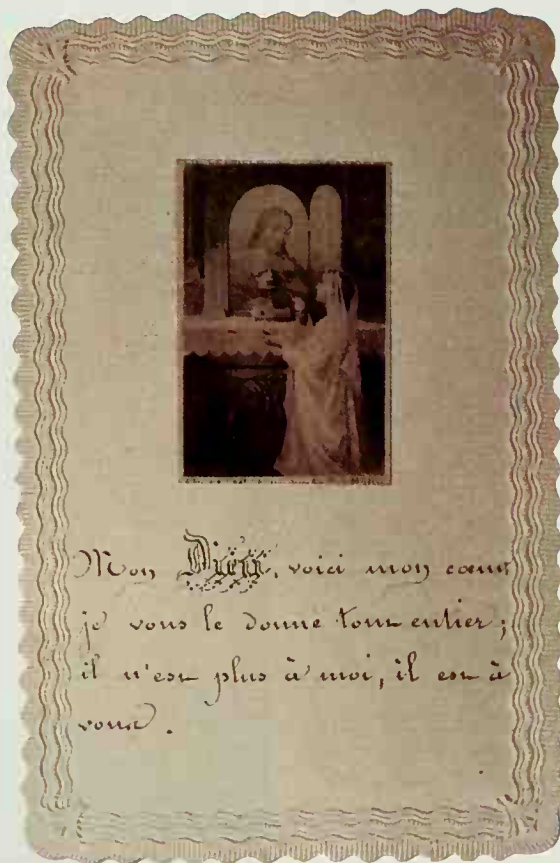 Mon Dieu, voici mon cœur
je vous le donne tout entier;
il n'est plus à moi, il est à
vous.